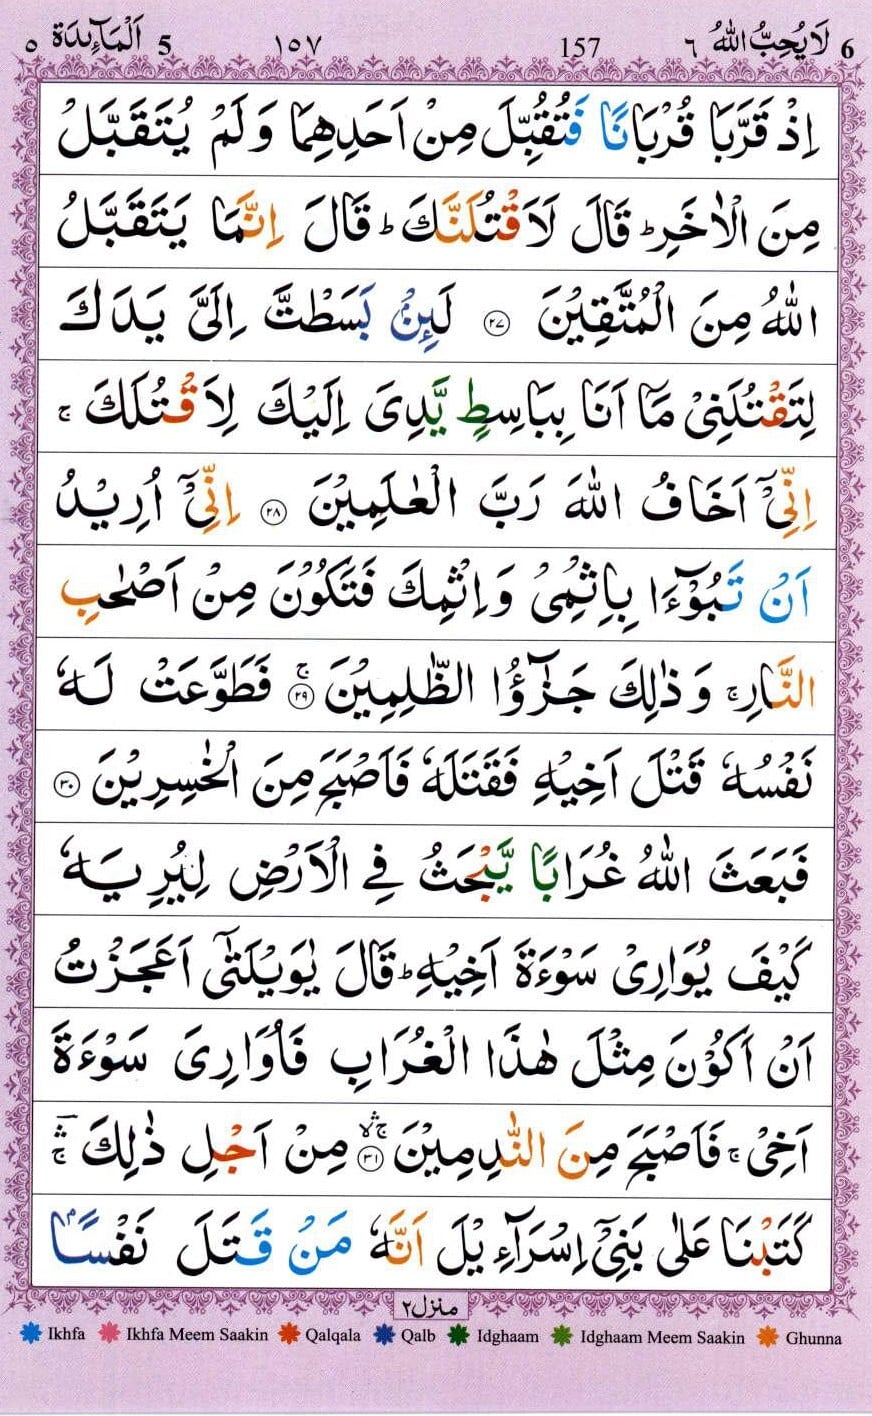 5 اَلْمَآئِدَة ٥ ١٥٧ 157 لَا يُحِبُّ اللهُ ٦ 6
اِذْ قَرَّبَا قُرْبَانًا فَتُقُبِّلَ مِنْ اَحَدِهِمَا وَلَمْ يُتَقَبَّلْ
مِنَ الْاٰخَرِ ؕ قَالَ لَاَقْتُلَنَّكَ ؕ قَالَ اِنَّمَا يَتَقَبَّلُ
اللهُ مِنَ الْمُتَّقِيْنَ ﴿٢٧﴾ لَئِنْۢ بَسَطْتَّ اِلَيَّ يَدَكَ
لِتَقْتُلَنِيْ مَاۤ اَنَا بِبَاسِطٍ يَّدِيَ اِلَيْكَ لِاَقْتُلَكَ ۚ
اِنِّيْۤ اَخَافُ اللهَ رَبَّ الْعٰلَمِيْنَ ﴿٢٨﴾ اِنِّيْۤ اُرِيْدُ
اَنْ تَبُوْٓءَا بِاِثْمِيْ وَاِثْمِكَ فَتَكُوْنَ مِنْ اَصْحٰبِ
النَّارِ ۚ وَذٰلِكَ جَزٰٓؤُا الظّٰلِمِيْنَ ۚ﴿٢٩﴾ فَطَوَّعَتْ لَهٗ
نَفْسُهٗ قَتْلَ اَخِيْهِ فَقَتَلَهٗ فَاَصْبَحَ مِنَ الْخٰسِرِيْنَ ﴿٣٠﴾
فَبَعَثَ اللهُ غُرَابًا يَّبْحَثُ فِي الْاَرْضِ لِيُرِيَهٗ
كَيْفَ يُوَارِيْ سَوْءَةَ اَخِيْهِ ؕ قَالَ يٰوَيْلَتٰۤى اَعَجَزْتُ
اَنْ اَكُوْنَ مِثْلَ هٰذَا الْغُرَابِ فَاُوَارِيَ سَوْءَةَ
اَخِيْ ۚ فَاَصْبَحَ مِنَ النّٰدِمِيْنَ ۚۛۙ﴿٣١﴾ مِنْ اَجْلِ ذٰلِكَ ۚۛ
كَتَبْنَا عَلٰى بَنِيْۤ اِسْرَآءِيْلَ اَنَّهٗ مَنْ قَتَلَ نَفْسًاۢ
منزل ٢
Ikhfa Ikhfa Meem Saakin Qalqala Qalb Idghaam Idghaam Meem Saakin Ghunna